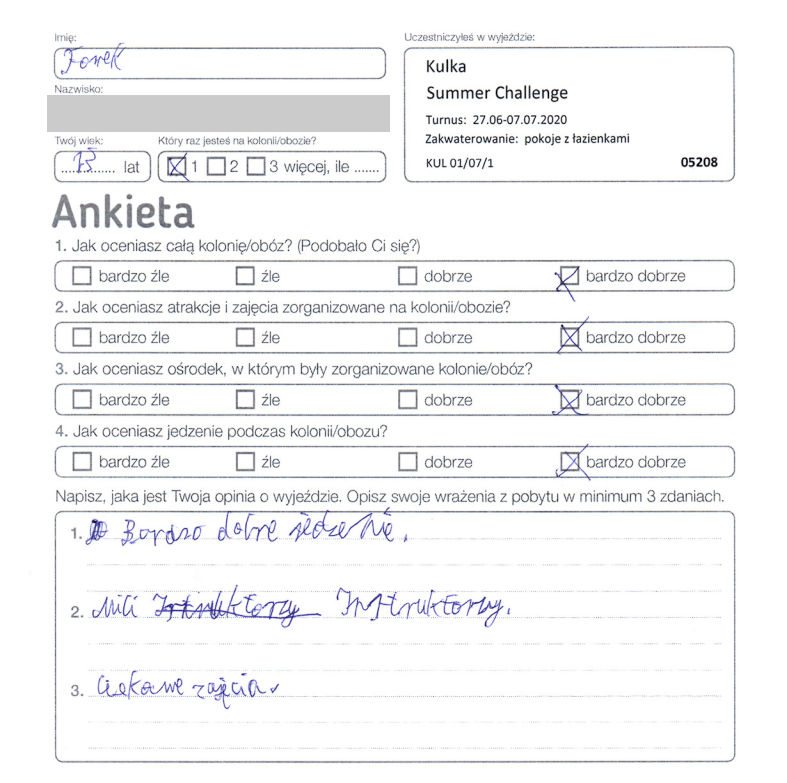 Imię:
Uczestniczyłeś w wyjeździe:
Kulka
Summer Challenge
Nazwisko:
Turnus: 27.06-07.07.2020
Zakwaterowanie: pokoje z łazienkami
KUL 01/07/1 05208
Twój wiek: Który raz jesteś na kolonii/obozie?
lat 1 2 3 więcej, ile .......
Ankieta
1. Jak oceniasz całą kolonię/obóz? (Podobało Ci się?)
bardzo źle źle dobrze bardzo dobrze
2. Jak oceniasz atrakcje i zajęcia zorganizowane na kolonii/obozie?
bardzo źle źle dobrze bardzo dobrze
3. Jak oceniasz ośrodek, w którym były zorganizowane kolonie/obóz?
bardzo źle źle dobrze bardzo dobrze
4. Jak oceniasz jedzenie podczas kolonii/obozu?
bardzo źle źle dobrze bardzo dobrze
Napisz, jaka jest Twoja opinia o wyjeździe. Opisz swoje wrażenia z pobytu w minimum 3 zdaniach.
1. Bardzo dobre jedzenie.
2. Mili Instruktorzy.
3. Ciekawe zajęcia